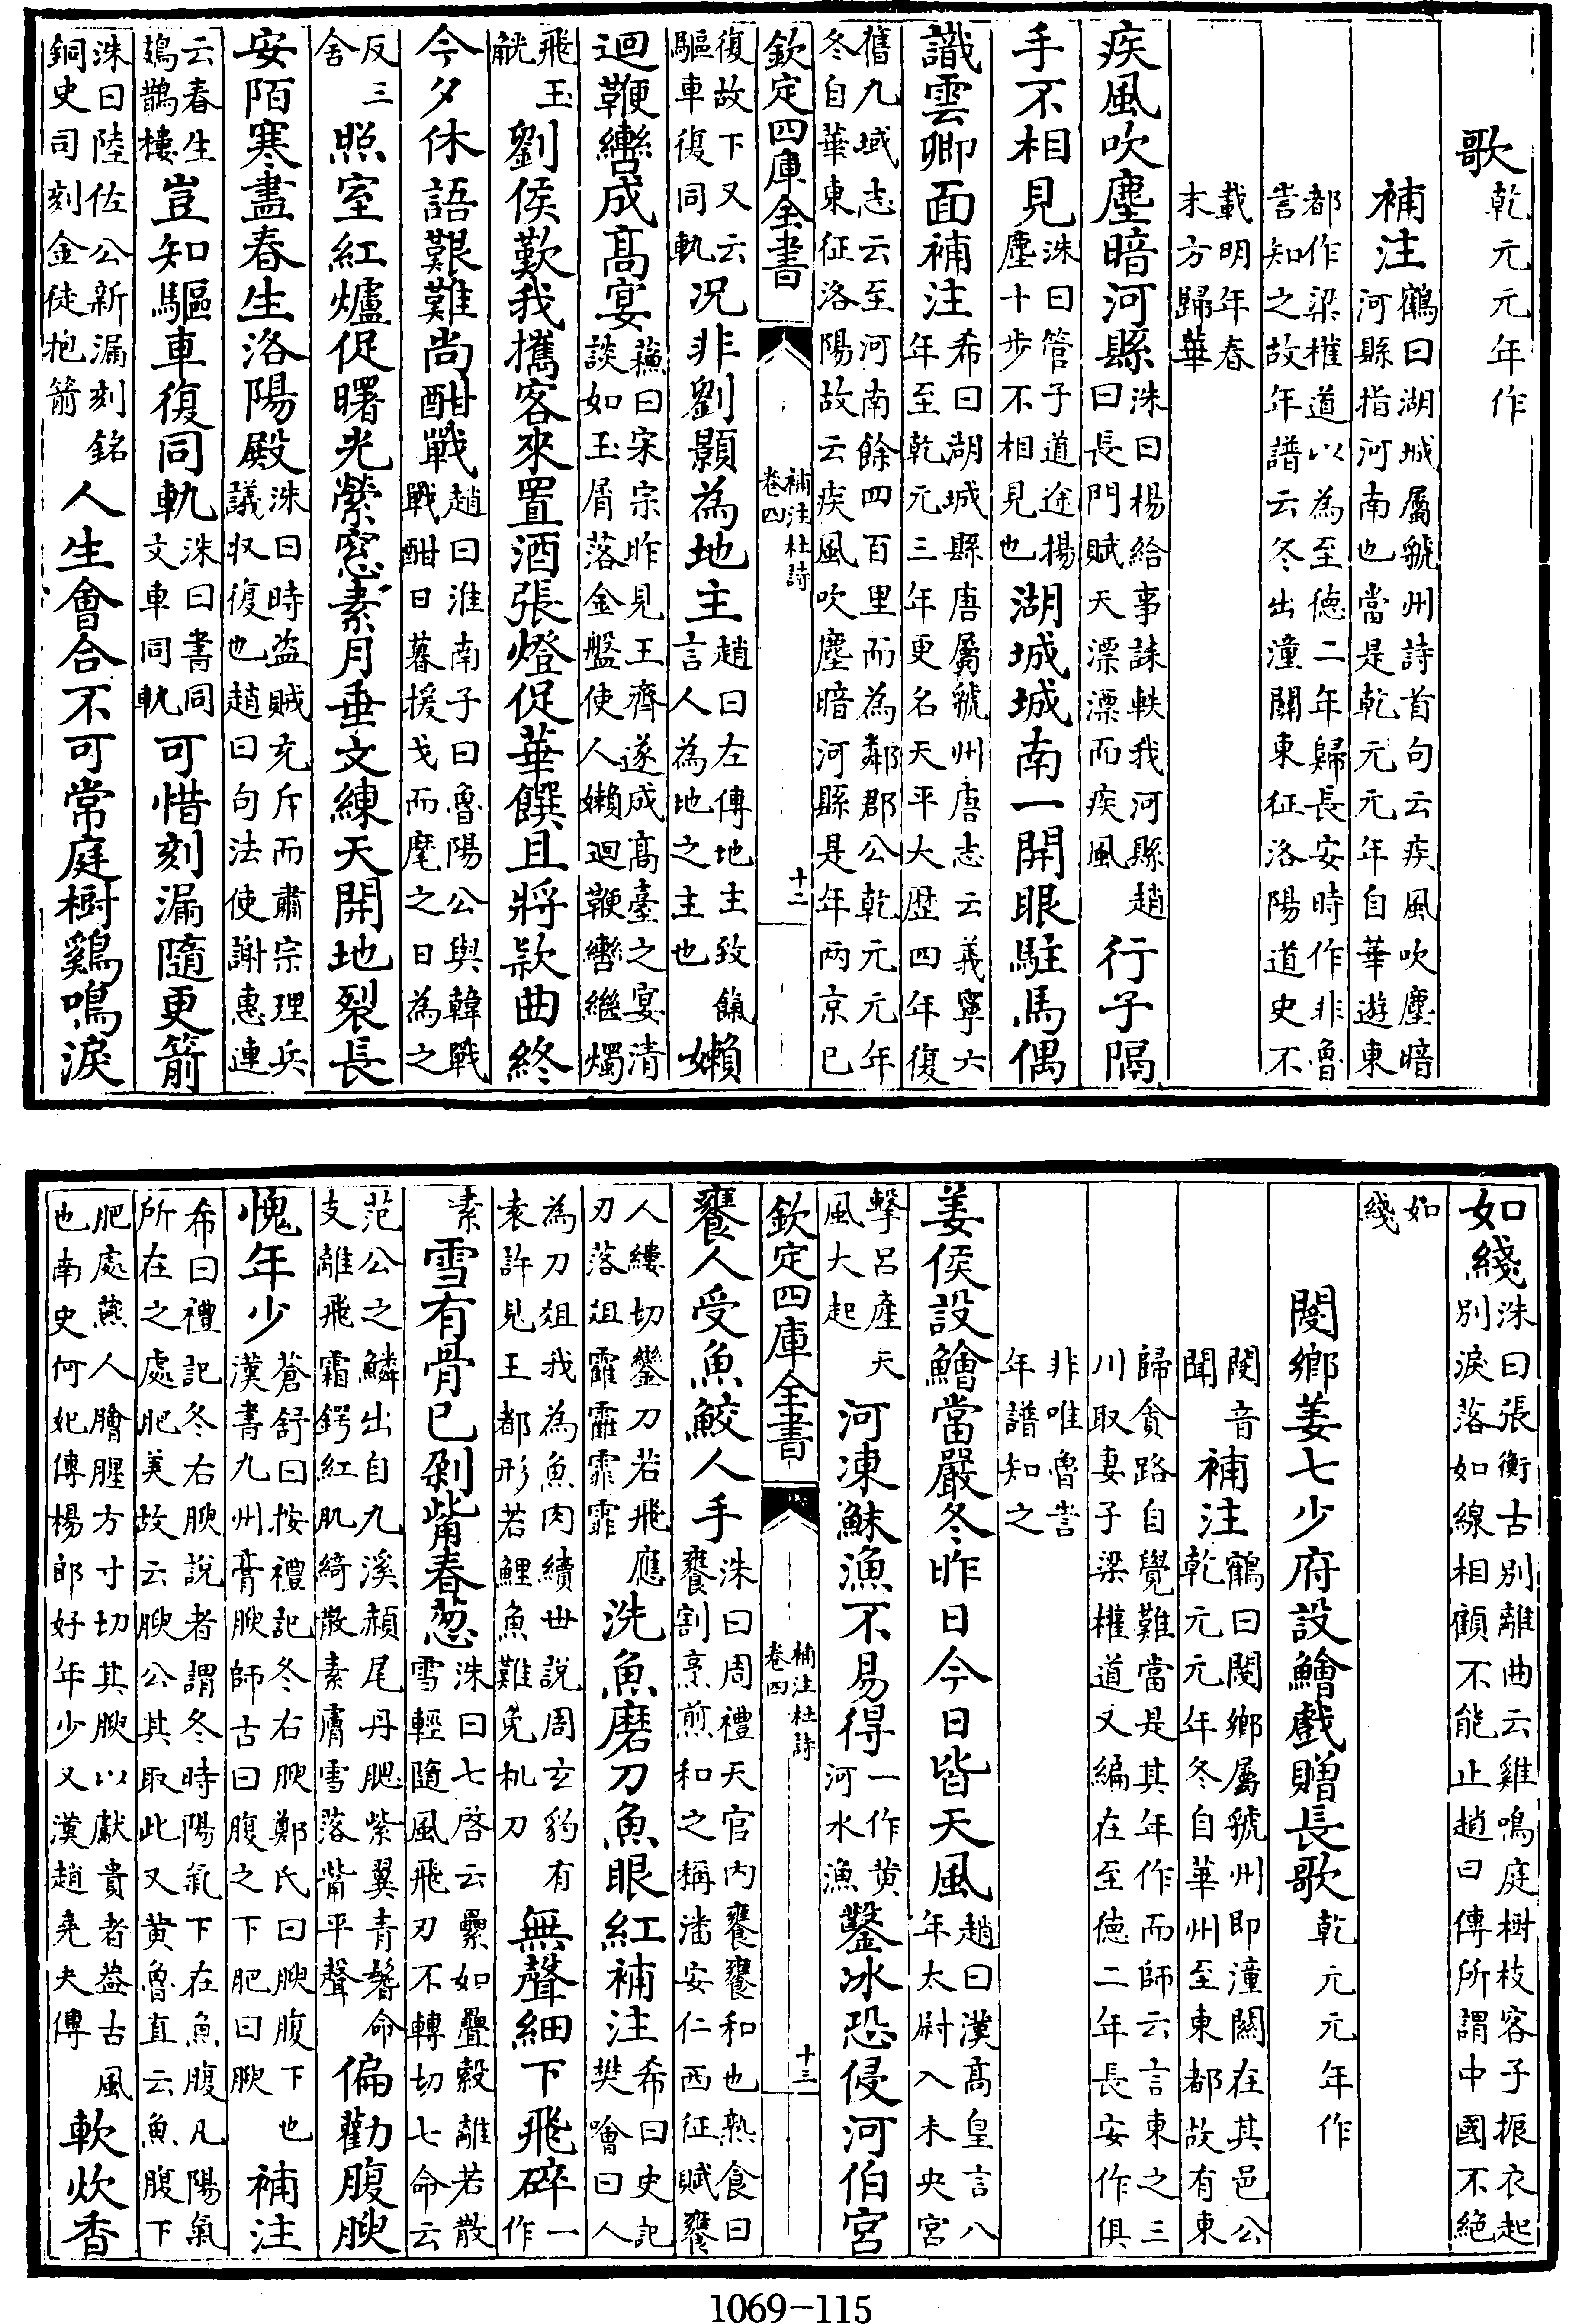 歌乾元元年作
補注鶴曰湖城屬虢州詩首句云疾風吹塵暗河縣指河南也當是乾元元年自華遊東
都作梁權道以為至德二年歸長安時作非魯訔知之故年譜云冬出潼關東征洛陽道史不
載明年春末方歸華
疾風吹塵暗河縣洙曰楊給事誄軼我河縣趙曰長門賦天漂漂而疾風行子隔
手不相見洙曰管子道途揚塵十步不相見也湖城城南一開眼駐馬偶
識雲卿面補注希曰湖城縣唐屬虢州唐志云義寧六年至乾元三年更名天平大歴四年復
舊九域志云至河南餘四百里而為鄰郡公乾元元年冬自華東征洛陽故云疾風吹塵暗河縣是年两京已
欽定四庫全書
補注杜詩
卷四
十二
復故下又云驅車復同軌况非劉顥為地主趙曰左傳地主致餼言人為地之主也嬾
迴鞭轡成髙宴蘓曰宋宗昨見王齊遂成髙臺之宴清談如玉屑落金盤使人嬾迴鞭轡繼燭
飛玉觥劉侯歎我攜客來置酒張燈促華饌且將欵曲終
今夕休語艱難尚酣戰趙曰淮南子曰魯陽公與韓戰戰酣日暮援戈而麾之日為之
反三舍照室紅爐促曙光縈窓素月垂文練天開地裂長
安陌寒盡春生洛陽殿洙曰時盗賊充斥而肅宗理兵議収復也趙曰句法使謝惠連
云春生鳷鵲樓豈知驅車復同軌洙曰書同文車同軌可惜刻漏隨更箭
洙曰陸佐公新漏刻銘銅史司刻金徒抱箭人生會合不可常庭樹鷄鳴淚
如綫洙曰張衡古别離曲云雞鳴庭樹枝客子振衣起别淚落如線相顧不能止趙曰傳所謂中國不絕
如綫
閿鄉姜七少府設鱠戲贈長歌乾元元年作
閿音聞補注鶴曰閿鄉屬虢州即潼關在其邑公乾元元年冬自華州至東都故有東
歸貪路自覺難當是其年作而師云言東之三川取妻子梁權道又編在至德二年長安作俱
非唯魯訔年譜知之
姜侯設鱠當嚴冬昨日今日皆天風趙曰漢髙皇言八年太尉入未央宮
擊呂產天風大起河凍䱅漁不易得一作黄河水漁鑿冰恐侵河伯宮
欽定四庫全書
補注杜詩
卷四
十三
饔人受魚鮫人手洙曰周禮天官内饔饔和也熟食曰饔割烹煎和之稱潘安仁西征賦饔
人縷切鑾刀若飛應刃落俎霍霍霏霏洗魚磨刀魚眼紅補注希曰史記樊噲曰人
為刀俎我為魚肉續世說周玄豹有袁許見王都形若鯉魚難免机刀無聲細下飛碎一作
素雪有骨已剁觜春葱洙曰七啓云纍如疊縠離若散雪輕隨風飛刃不轉切七命云
范公之鱗出自九溪頳尾丹腮紫翼青鬐命支離飛霜鍔紅肌綺散素膚雪落觜平聲偏勸腹腴
愧年少蒼舒曰按禮記冬右腴鄭氏曰腴腹下也漢書九州膏腴師古曰腹之下肥曰腴補注
希曰禮記冬右腴說者謂冬時陽氣下在魚腹凡陽氣所在之處肥美故云腴公其取此又黄魯直云魚腹下
肥處燕人膾腥方寸切其腴以獻貴者益古風也南史何妃傳楊郎好年少又漢趙尭夫傳軟炊香
1069-115